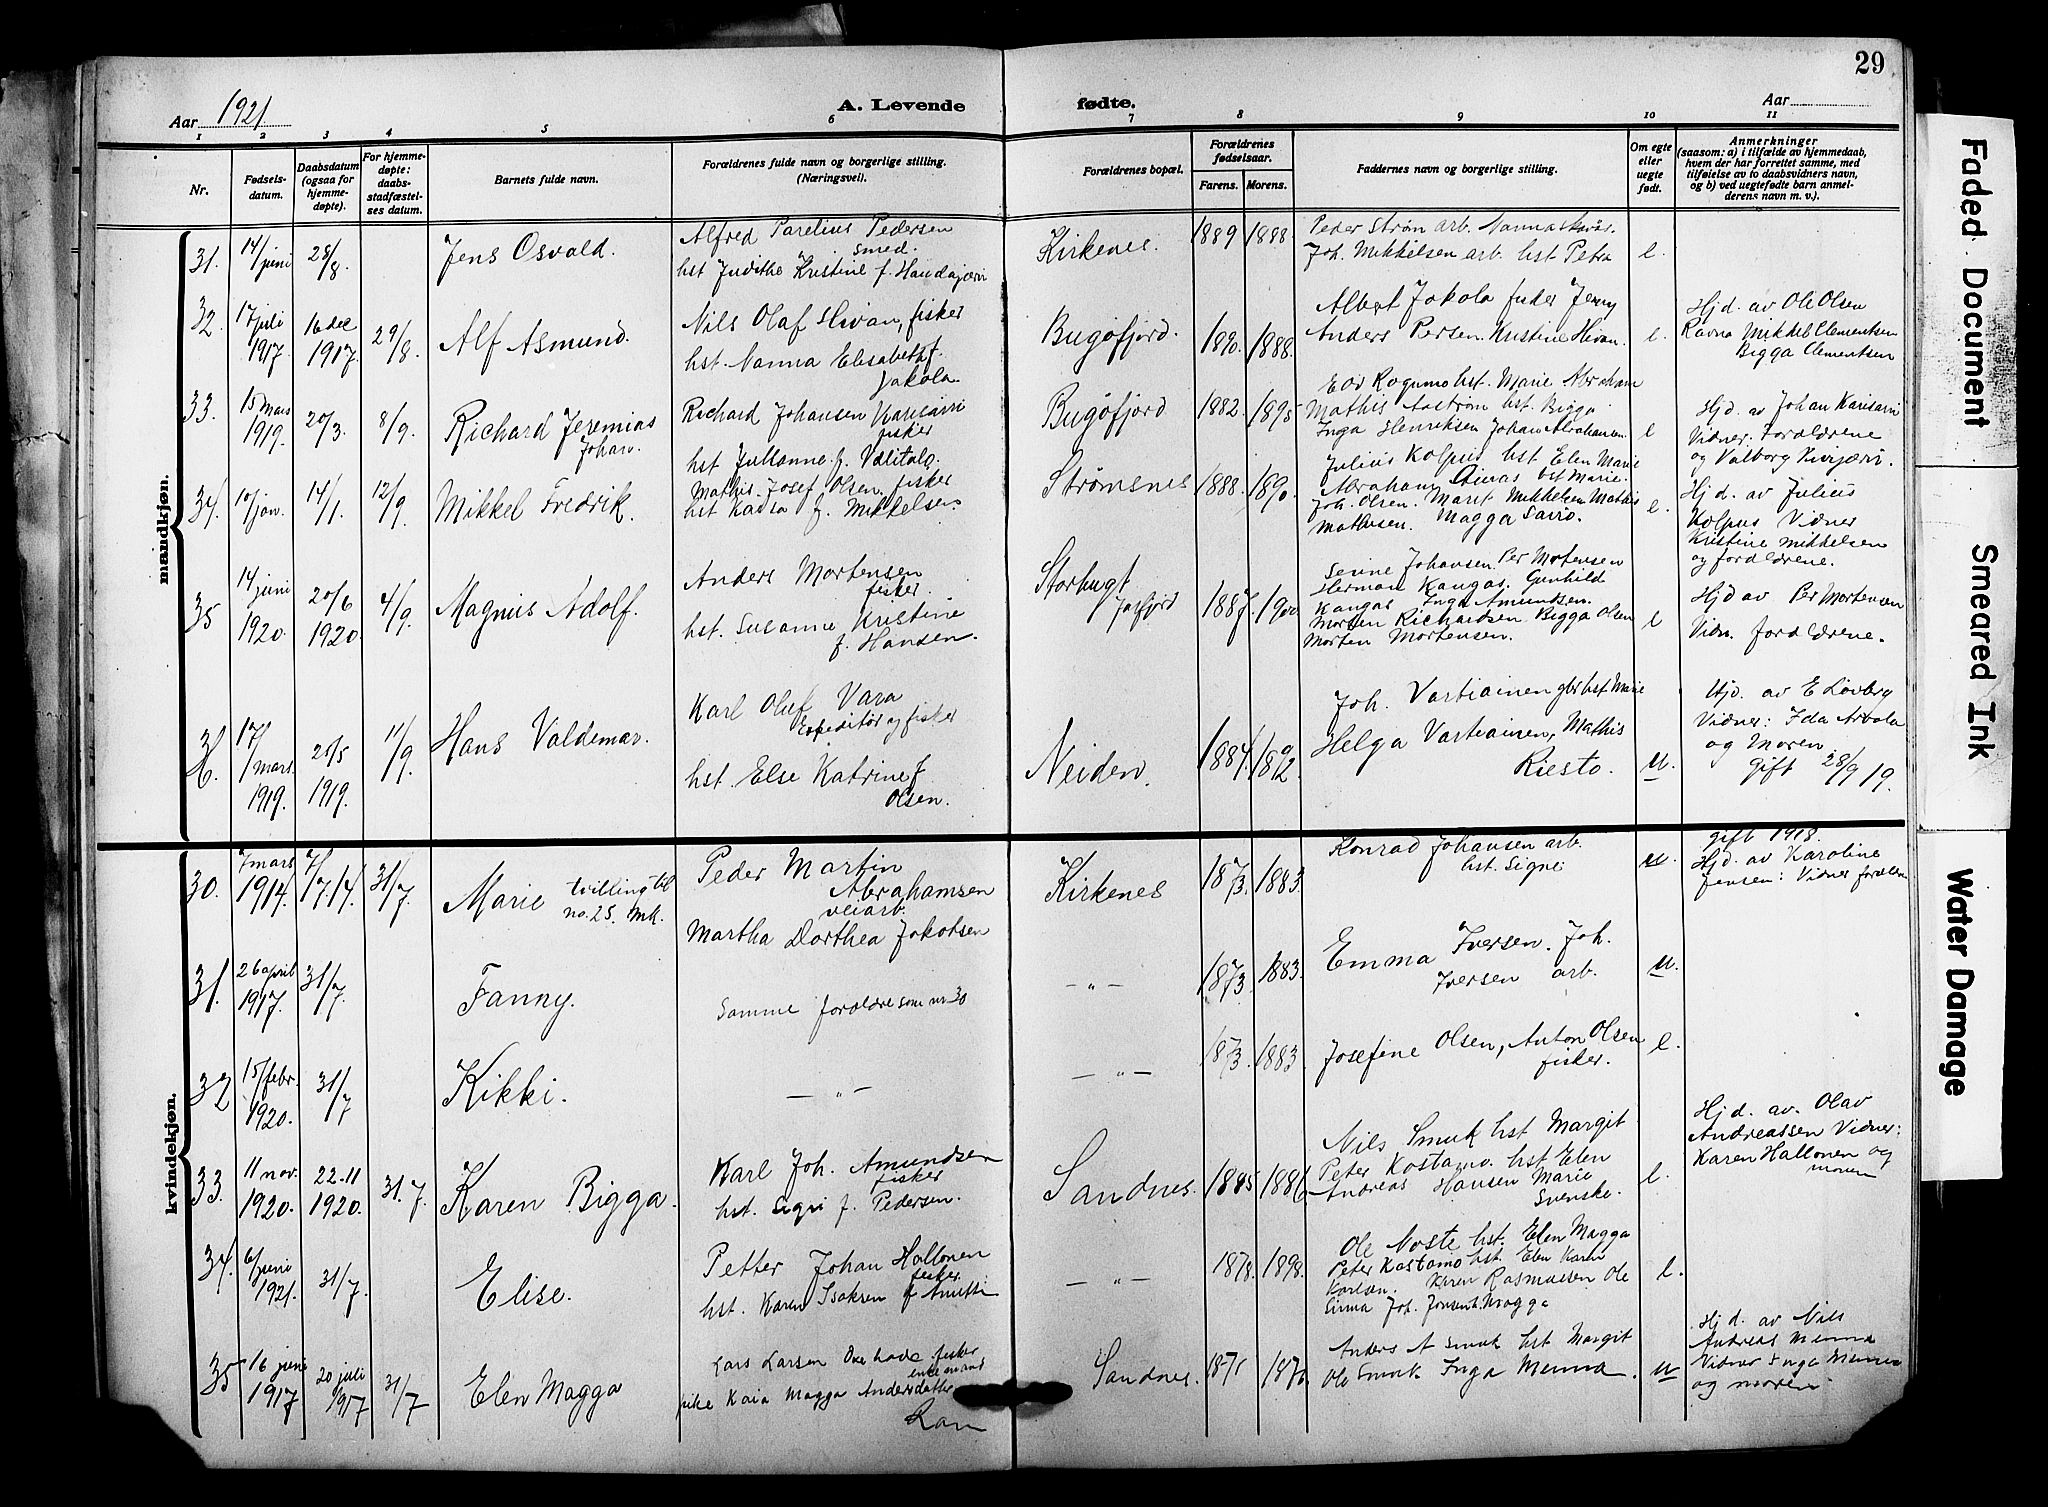 29
Aar 1921
A. Levende
fødte.
Aar
1 2 3 4 5 6 7 8 9 10 11
Nr.
Fødsels-
datum.
Daabsdatum
(ogsaa for
hjemme-
døpte).
For hjemme-
døpte:
daabs-
stadfæstel-
ses datum.
Barnets fulde navn.
Forældrenes fulde navn og borgerlige stilling.
(Næringsvei).
Forældrenes bopæl.
Forældrenes
fødselsaar.
Farens. Morens.
Faddernes navn og borgerlige stilling.
Om egte
eller
uegte
født.
Anmerkninger
(saasom: a) i tilfælde av hjemmedaab,
hvem der har forrettet samme, med
tilføielse av to daabsvidners navn,
og b) ved uegtefødte barn anmel-
derens navn m. v.).
mandkjøn.
31. 14/juni 28/8. Jens Osvald.
Alfred Parelius Pedersen
smed.
hst Judithe Kristine f.
Kirkenes. 1889 1888.
Peder Strøm arb. Nanna
Joh. Mikkelsen arb. hst Petra
e.
32. 17 juli 1917. 16 dec 1917. 29/8. Alf Asmund.
Nils Olaf Hivan, fisker
hst. Nanna Elisabeth f.
Jakola.
Bugøfjord. 1890. 1888.
Albert Jakola
Anders Persen. Kristine Hivan.
e.
Hjd. av Ole Olsen
Ravna Mikkel Clementsen
Bigga Clementsen
33. 15 mars 1919. 20/3. 8/9. Richard Jeremias
Johan.
Richard Johansen Karisarri
fisker
hst Julianne f. Valitalo.
Bugøfjord 1882. 1895
hst. Marie Abraham
Mathis hst. Bigga
Inga Henriksen Johan Abrahamsen.
e
Hjd. av Johan Karisarri
Vidner. Forældrene
og Valborg
34. 10/jan. 14/1. 12/9. Mikkel Fredrik.
Mathis Josef Olsen. fisker
hst Kaisa f. Mikkelsen.
Strømsnes 1888. 1890.
Julius Kolpus hst Elen Marie
Abraham hst Marie.
Joh. Olsen. Maret Mikkelsen Mathis
Mathisen. Magga Savio.
e.
Hjd. av Julius
Kolpus Vidner
Kristine Mikkelsen
og forældrene.
35 14 juni 1920. 20/6 1920. 4/9. Magnus Adolf.
Anders Mortensen
fisker.
hst. Susanne Kristine
f. Hansen.
Storbugt
Jarfjord
1887. 1900
Senine Johansen. Per Mortensen
Herman Kangas. Gunhild
Kangas Inga Amundsen.
Morten Richardsen Bigga Olsen
Morten Mortensen.
e
Hjd av Per Mortensen
Vidn. forældrene.
36. 17/mars. 1919. 25/5 1919. 11/9. Hans Valdemar.
Karl Oluf Vara
Expeditør og fisker
hst. Else Katrine f.
Olsen.
Neiden. 1884. 1892.
Joh. Vartiainen gbr hst. Marie
Helga Vartiainen, Mathis
Riesto.
u.
Hjd. av E Lovberg
Vidner: Ida Arvola
og Moren.
Gift 28/9 19.
kvindekjøn.
30. 7 mars 1914. 7/7.14. 31/7. Marie tvilling til
no. 25. mk.
Peder Martin
Abrahamsen
veiarb.
Martha Dorthea Jakobsen
Kirkenes 1873. 1883.
Konrad Johansen arb.
hst. Signe
u.
gift 1918.
Hjd. av Karoline
Jensen: Vidner foræ
31. 26 april 1917. 31/7. Fanny.
Samme forældre som nr 30
— „ —
1873. 1883.
Emma Iversen. Joh.
Iversen arb.
u.
32 15/febr. 1920. 31/7 Kikki.
— „ —
— „ —
1873. 1883.
Josefine Olsen, Anton Olsen
fisker.
e.
33. 11 nov. 1920. 22.11 1920. 31.7. Karen Bigga.
Karl Joh. Amundsen
fisker
hst. Sigri f. Pedersen.
Sandnes. 1885 1886
Nils Smuk hst Margit
Peter Kostamo. hst Elen
Andreas Hansen Marie
Svenske.
e.
Hjd. av. Olav
Andreassen Vidner:
Karen Hallonen og
moren
34. 6/juni 1921. 31/7. Elise.
Petter Johan Hallonen
fisker.
hst. Karen Isaksen f
— „ —
1878. 1898.
Ole Noste hst. Elen Magga
Peter Kostamo hst. Elen Karen
Karlsen. Karen Rasmussen Ole
Sirma Joh. Magga
e.
35 16 juni 1917 20 juli 1917 31/7 Elen Magga
Lars Larsen fisker
enkemand
pike Kaia Magga Andersdatter
Sandnes. 1871 1870
Anders A Smuk hst Margit
Ole Smuk Inga Menna.
u
Hjd. av Nils
Andreas Menna
Vidner Inga Menna
og moren
Faded Document
Smeared Ink
Water Damage